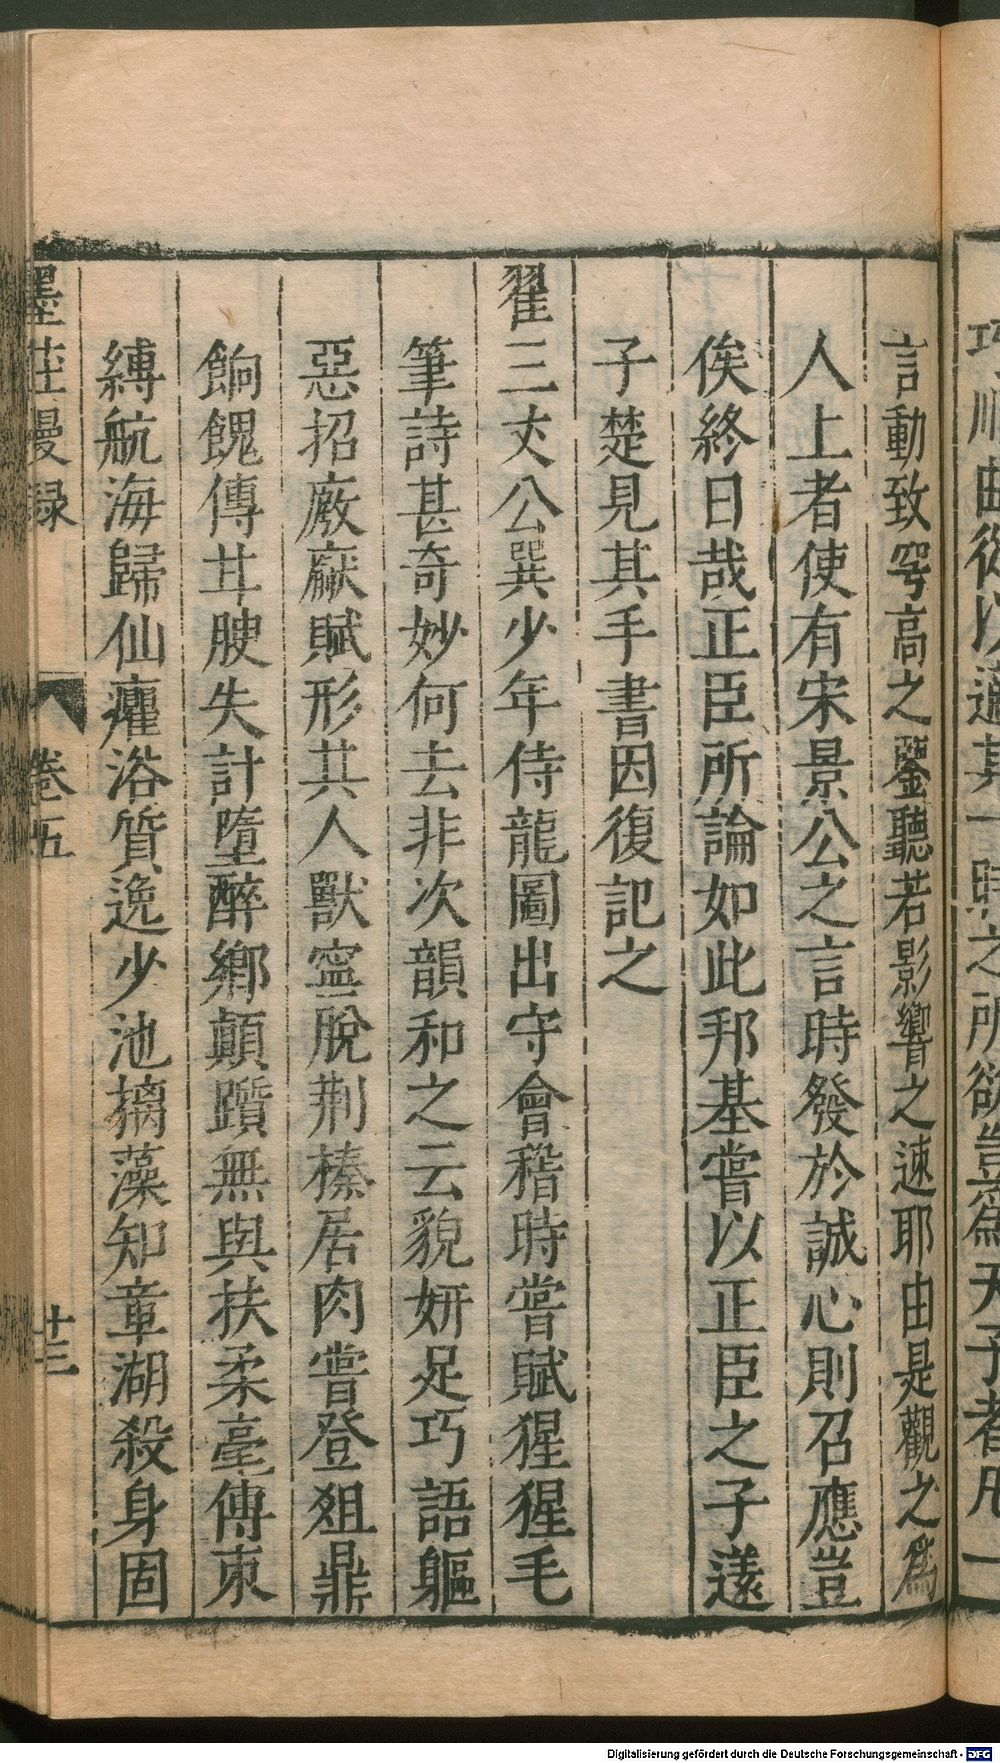 巧順曲從以適其一時之所欲豈爲天子者凡一
言動致穹高之鑒聽若影響之速耶由是觀之爲
人上者使有宋景公之言時發於誠心則召應豈
俟終日哉正臣所論如此邦基嘗以正臣之子薳
子楚見其手書因復記之
翟三丈公巽少年侍龍圖出守會稽時嘗賦猩猩毛
筆詩甚奇妙何去非次韻和之云貌妍足巧語軀
惡招厥厭賦形共人獸寧脫荆榛居肉嘗登俎鼎
餉餽傳甘腴失計墮醉鄉顛躓無與扶柔毫傳束
縛航海歸仙癯浴質逸少池摛藻知章湖殺身固
墨莊漫録
卷五
廿三
Digitalisierung gefördert durch die Deutsche Forschungsgemeinschaft - DFG